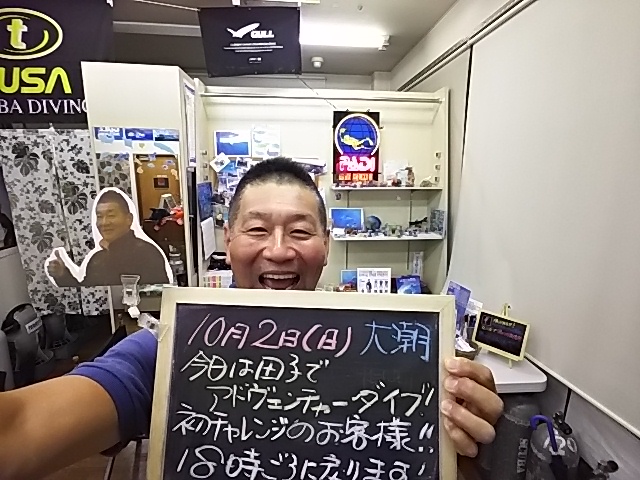 t
USA
BA DIVING
GULL
PADI
10月2日(日) 大潮
今日は田子で
アドヴェンチャーダイブ!!
初チャレンジのお客様!!
18時ごろになります!